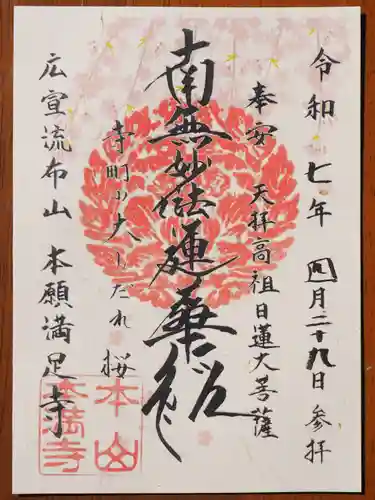 令和七年四月二十九日参拝
奉安 天拝高祖日蓮大菩薩
南無妙法蓮華経
寺町の大しだれ桜
広宣流布山 本願満足寺
本山
本満寺